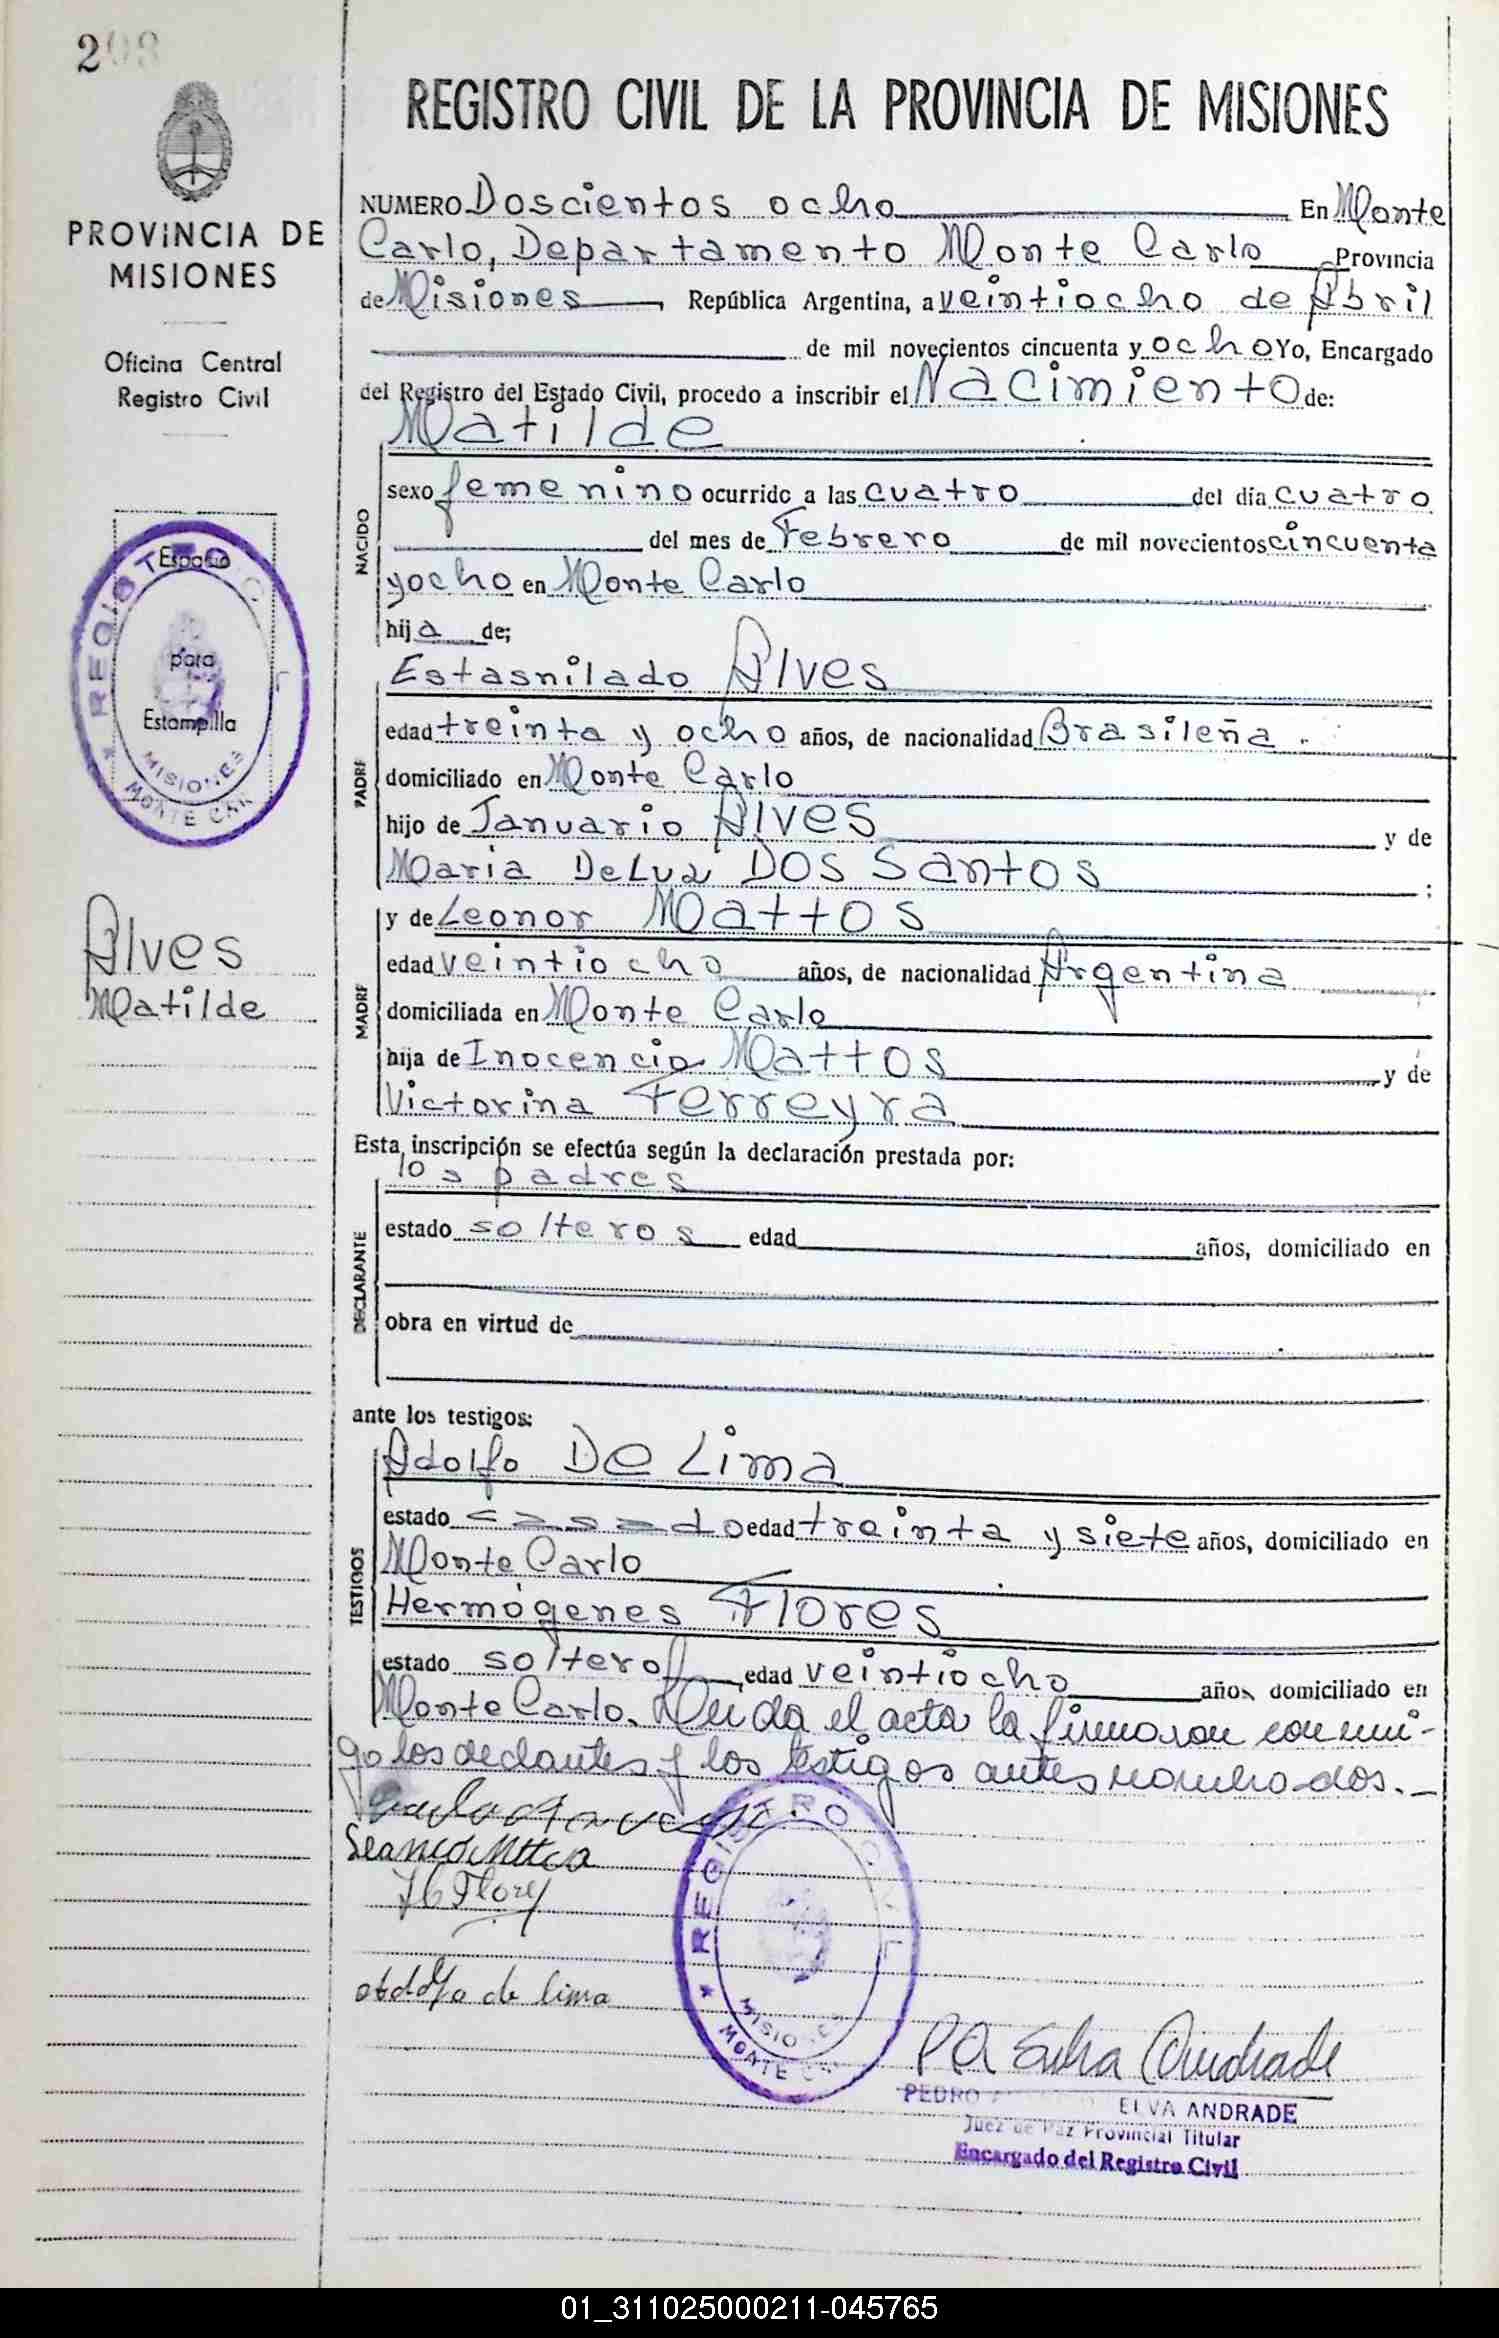 2
REGISTRO CIVIL DE LA PROVINCIA DE MISIONES
PROVINCIA DE
MISIONES
Oficina Central
Registro Civil
Espacio
para
Estampilla
REGISTRO C
MISIONES
MONTE CAR
Alves
Matilde
NUMERO Doscientos ocho En Monte
Carlo, Departamento Monte Carlo Provincia
de Misiones, República Argentina, a veintiocho de Abril
de mil novecientos cincuenta y ocho Yo, Encargado
del Registro del Estado Civil, procedo a inscribir el Nacimiento de:
Matilde
NACIDO
sexo femenino ocurrido a las cuatro del día cuatro
del mes de Febrero de mil novecientos cincuenta
y ocho en Monte Carlo
hija de;
Estasnilado Alves
PADRE
edad treinta y ocho años, de nacionalidad Brasileña.
domiciliado en Monte Carlo
hijo de Januario Alves y de
Maria DeLuz DOS Santos;
y de Leonor Mattos
MADRE
edad veintiocho años, de nacionalidad Argentina
domiciliada en Monte Carlo
hija de Inocencio Mattos y de
Victorina Ferreyra
Esta inscripción se efectúa según la declaración prestada por:
los padres
DECLARANTE
estado solteros edad años, domiciliado en
obra en virtud de
ante los testigos:
Adolfo De Lima
TESTIGOS
estado casado edad treinta y siete años, domiciliado en
Monte Carlo
Hermógenes Flores
estado soltero edad veintiocho años domiciliado en
Monte Carlo. Leida el acta la firmaron conmi-
go los declantes y los testigos antes nombrados.
H Flores
Adolfo de lima
REGISTRO CIVIL
MISIONES
MONTE CAR
PA Elva Andrade
PEDRO ELVA ANDRADE
Juez de Paz Provincial Titular
Encargado del Registro Civil
01_311025000211-045765